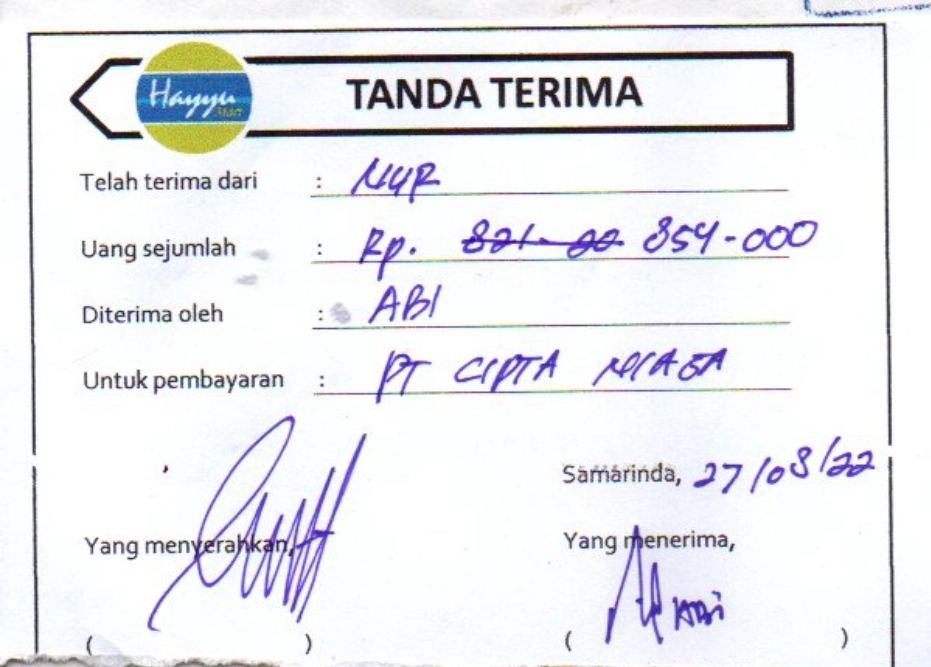 Hayyu
Mart
TANDA TERIMA
Telah terima dari : NUR
Uang sejumlah : Rp. 821-00 854-000
Diterima oleh : ABI
Untuk pembayaran : PT CIPTA NIAGA
Samarinda, 27/08/22
Yang menyerahkan, Yang menerima,
ABi
( ) ( )